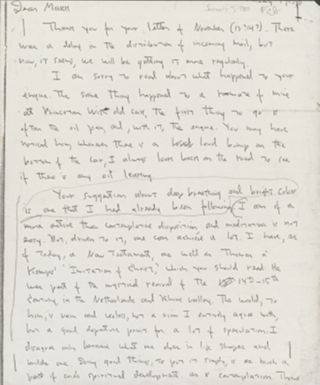 Dear Mark
Thank you for your letter of November (13th?). There
was a delay in the distribution of incoming mail, but
now, it seems, we will be getting it more regularly.
I am sorry to read about what happened to your
engine. The same thing happened to a roommate of mine
at Princeton. With old cars, the first thing to go is
often the oil pan, and, with it, the engine. You may have
noticed how whenever there is a loud bump on the
bottom of the car, I always look back on the road to see
if there is any oil leaking.
Your suggestion about deep breathing and bright colors
is one that I had already been following. I am of a
more active than contemplative disposition, and meditation is not
easy. But, driven to it, one can achieve a lot. I have, as
of today, a New Testament, as well as Thomas a
Kempis' "Imitation of Christ," which you should read. He
was part of the mystical revival of the 14th-15th
Century, in the Netherlands and Rhine valley. The world, to
him, is vain and useless, not a view I entirely agree with,
but a good departure point for a lot of speculation. I
disagree only because what one does in life shapes and
builds one. Doing good things, to put it simply, is as much a
part of one's spiritual development as is contemplation. There